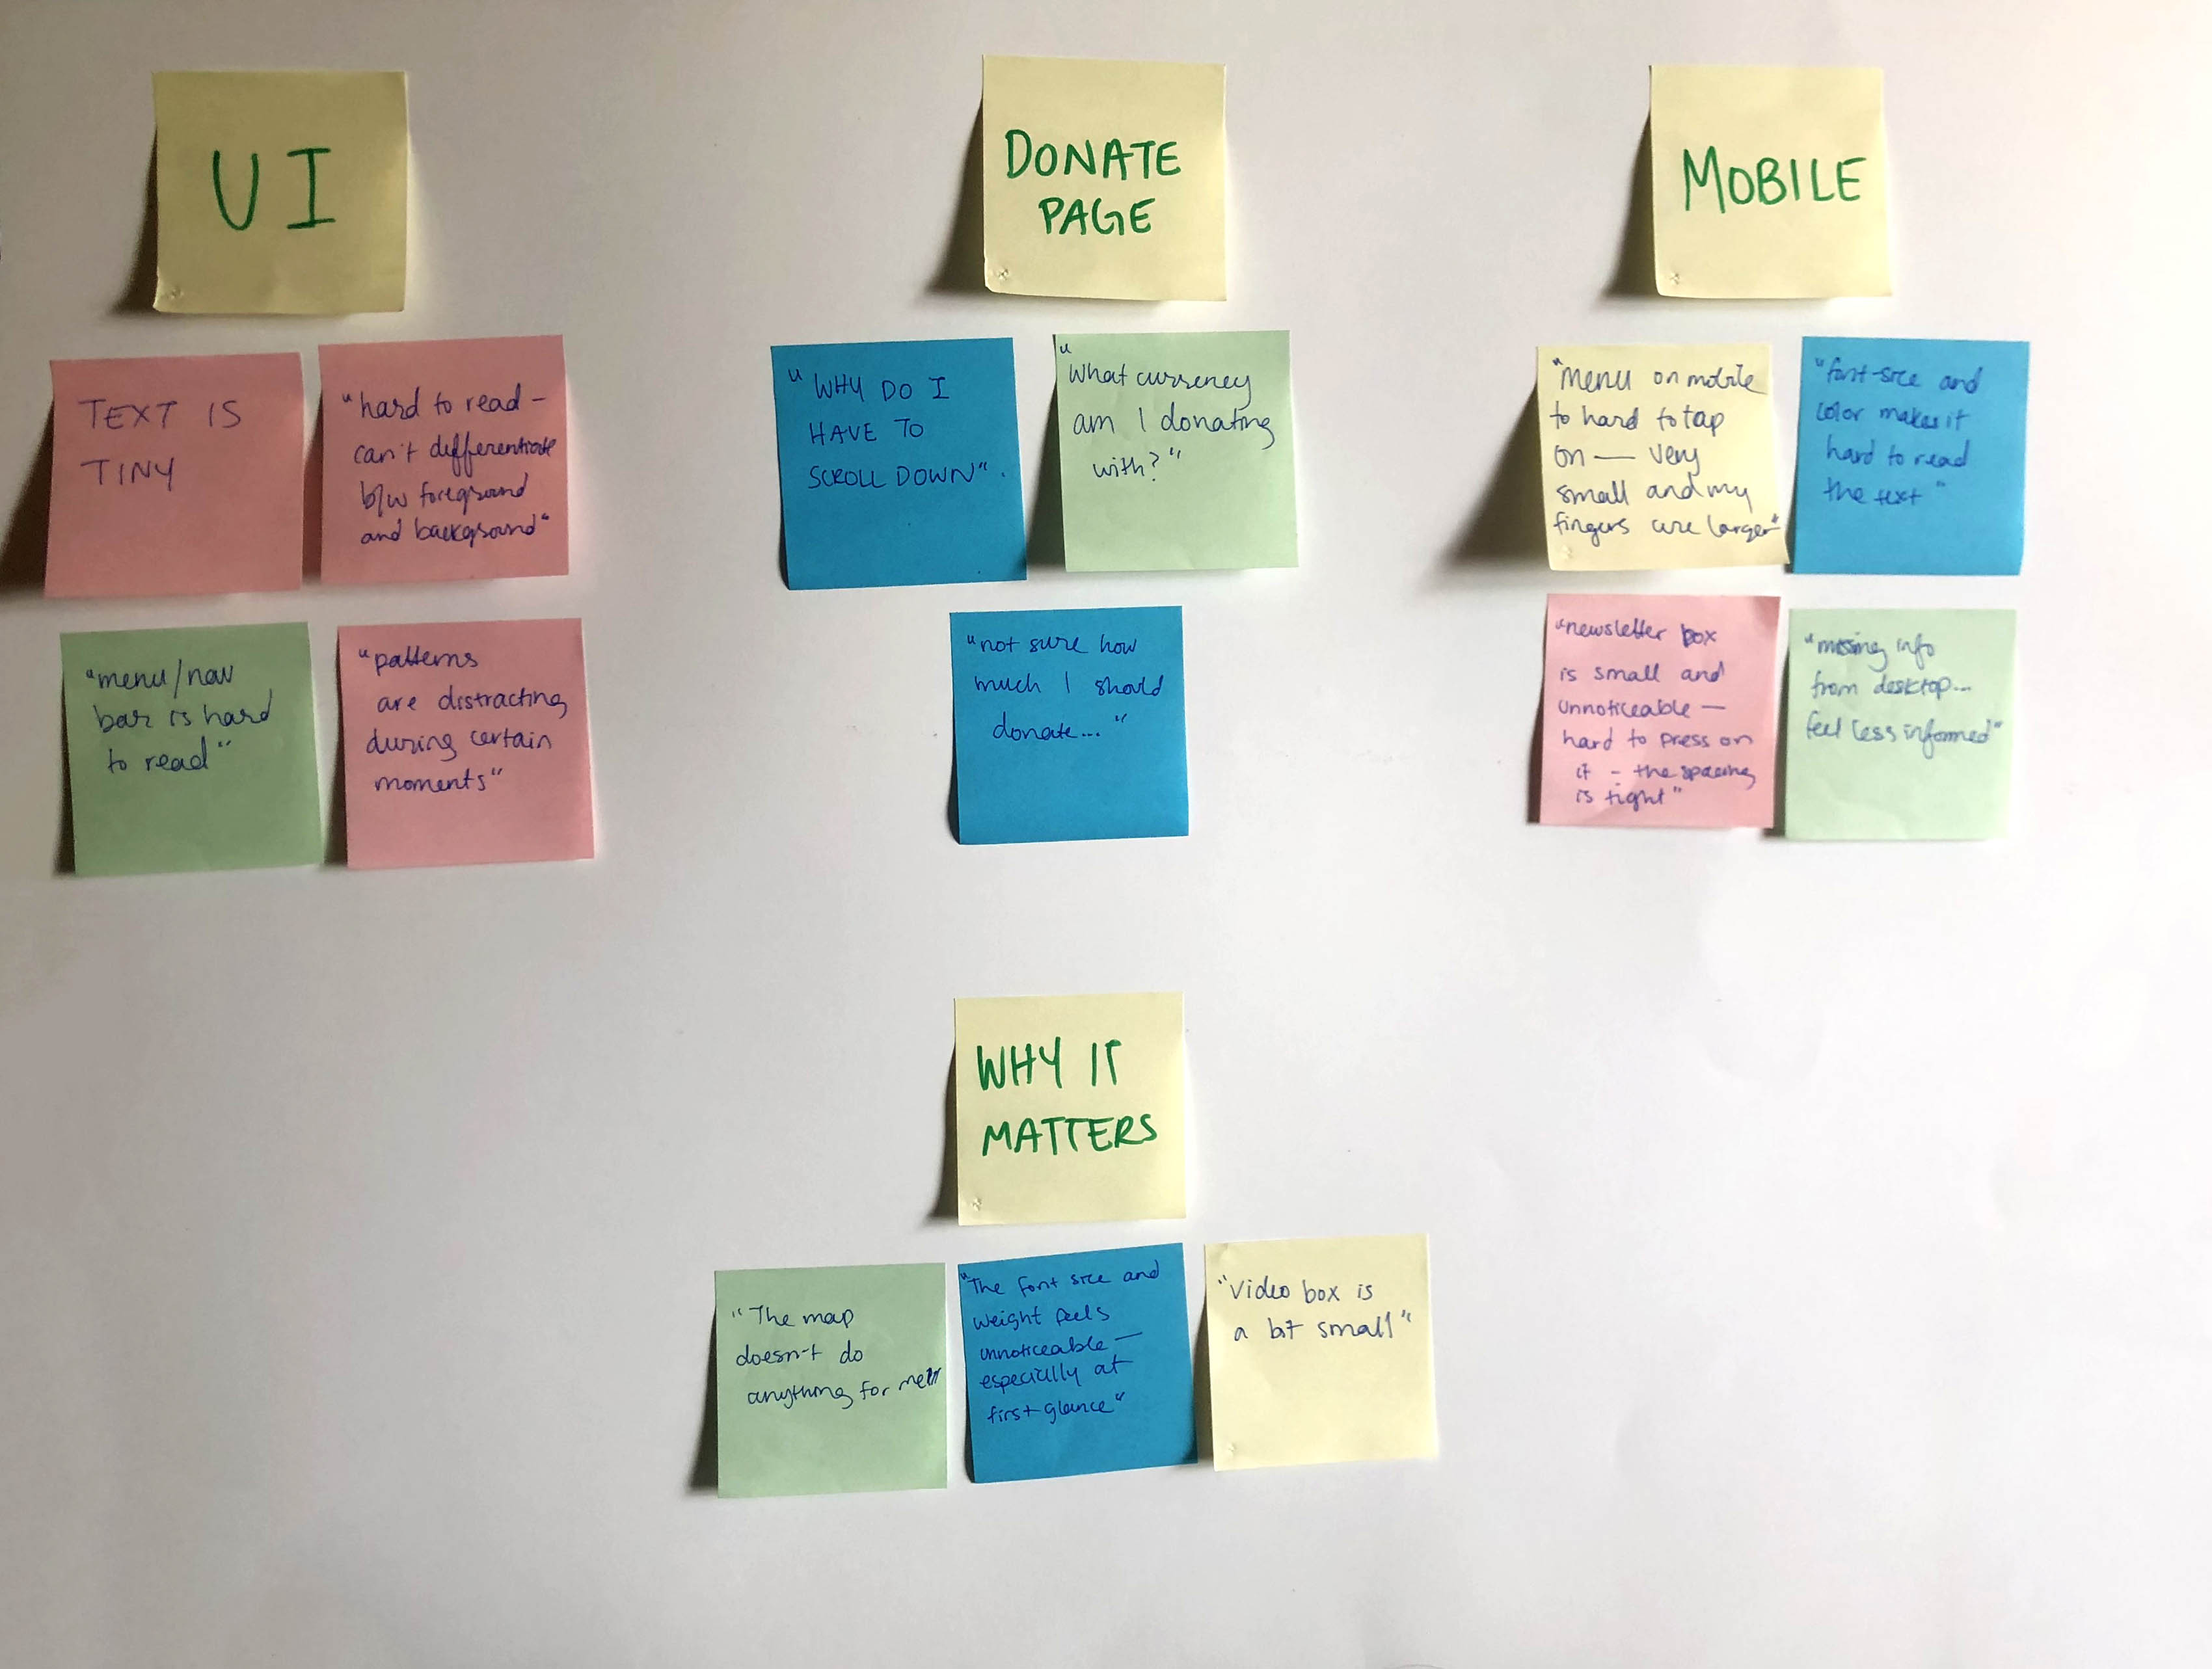 UI
TEXT IS
TINY
"hard to read -
can't differentiate
b/w foreground
and background"
"menu/nav
bar is hard
to read"
"patterns
are distracting
during certain
moments"
DONATE
PAGE
"WHY DO I
HAVE TO
SCROLL DOWN".
"
What currency
am I donating
with?"
"not sure how
much I should
donate..."
MOBILE
"Menu on mobile
to hard to tap
on — very
small and my
fingers are larger"
"font-size and
color makes it
hard to read
the text"
"newsletter box
is small and
unnoticeable —
hard to press on
it - the spacing
is tight"
"missing info
from desktop...
feel less informed"
WHY IT
MATTERS
"The map
doesn't do
anything for me"
"The font size and
weight feels
unnoticeable —
especially at
first glance"
"Video box is
a bit small"